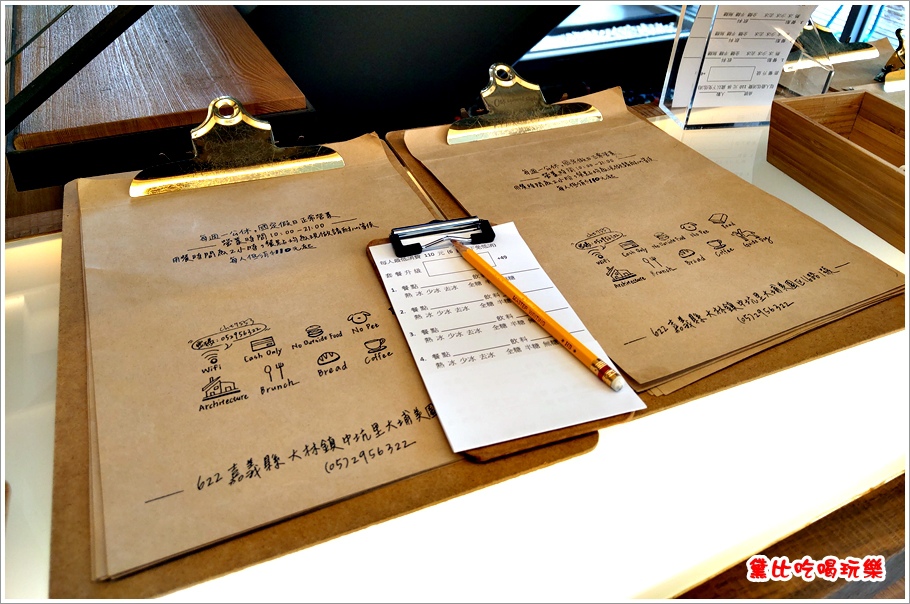 每週一公休，國定假日正常營業
營業時間 10:00 - 21:00
用餐時間為2小時，餐點均為現做請耐心等候
每人低消
che9553
密碼:052956322
WiFi
Cash Only
No Outside Food
No Pet
Architecture
Brunch
Bread
Coffee
622 嘉義縣大林鎮中坑里大埔美園
(05)2956322
每人最低消費 110 元
套餐升級
+69
1. 餐點 飲料
熱 冰 少冰 去冰 全糖 半糖
2. 餐點 飲料
熱 冰 少冰 去冰 全糖 半糖
3. 餐點 飲料
熱 冰 少冰 去冰 全糖 半糖 無糖
4. 餐點 飲料
熱 冰 少冰 去冰 全糖 半糖 無糖
每週一公休，國定假日正常營業
營業時間 10:00 - 21:00
用餐時間為2小時，餐點均為現做請耐心等候
WiFi
Cash Only
No Outside Food
No Pet
Food
Architecture
Brunch
Bread
Coffee
622 嘉義縣大林鎮中坑里大埔美園區
(05)2956322
黛比吃喝玩樂